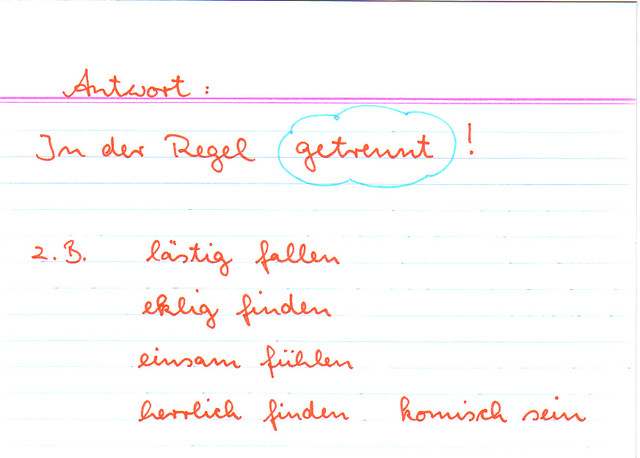 Antwort:
In der Regel getrennt!
z.B. lästig fallen
eklig finden
einsam fühlen
herrlich finden komisch sein